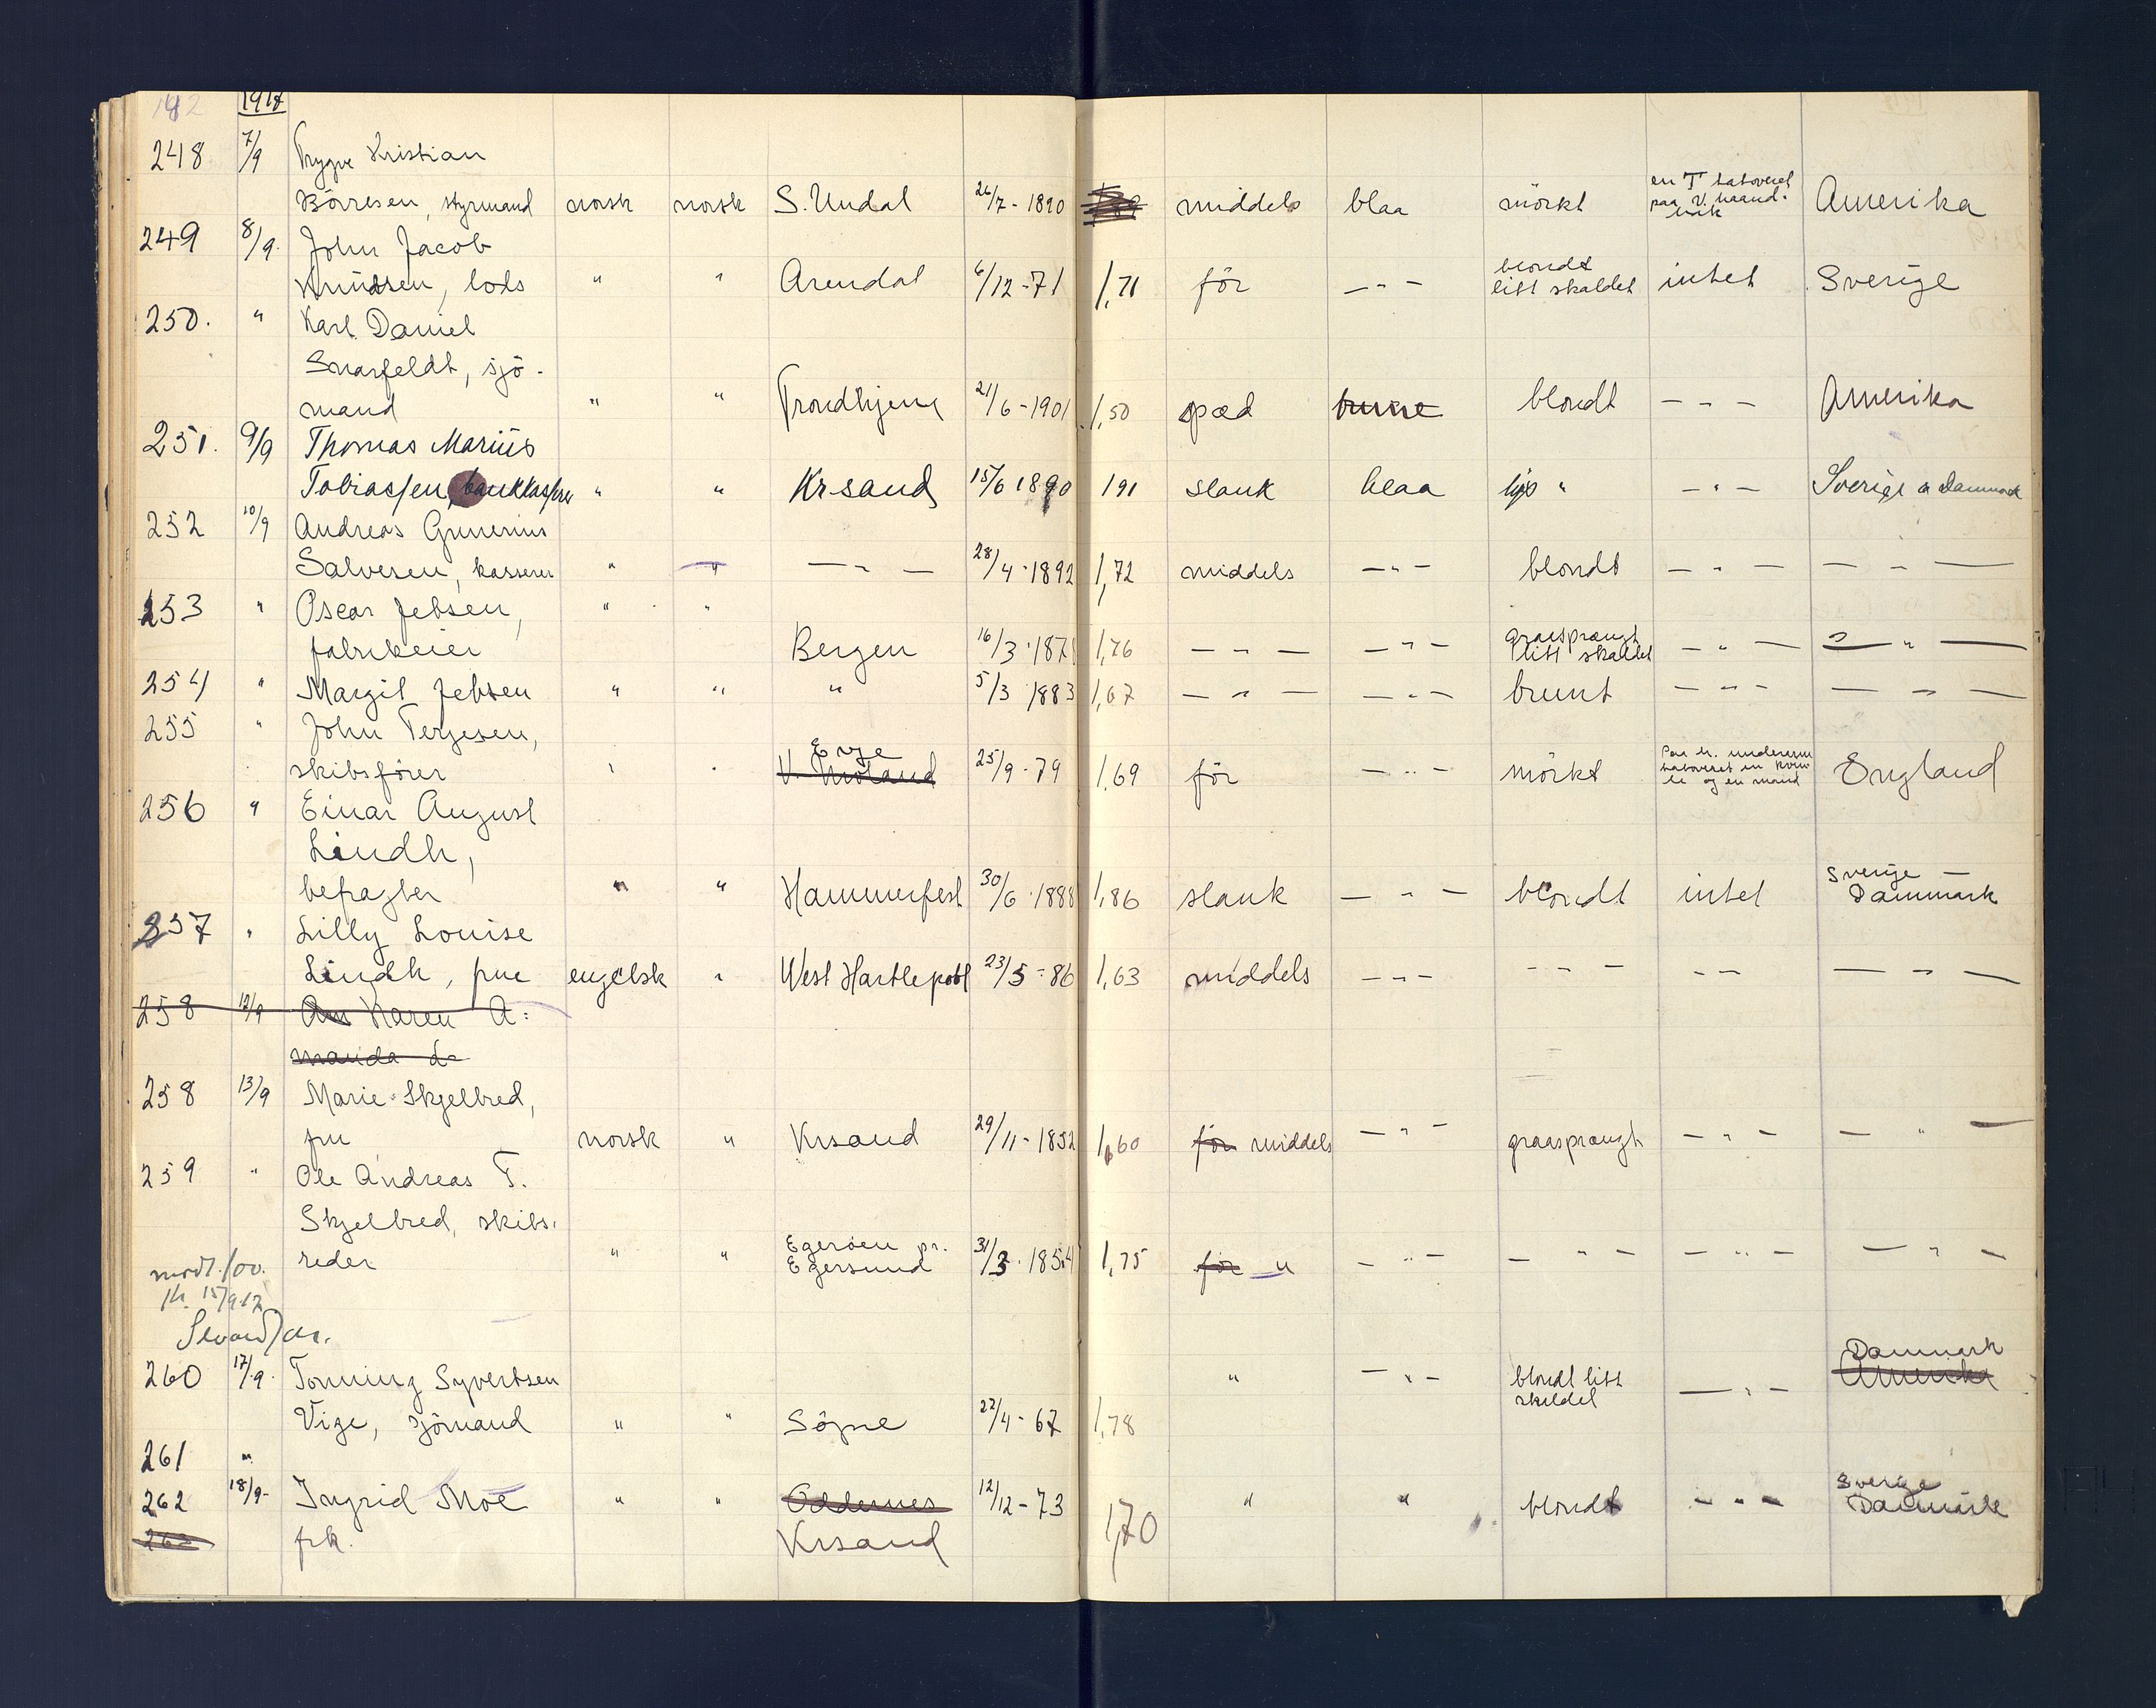 1917
248 7/9 Trygve Kristian
Börresen, styrmand norsk norsk S. Undal 26/7-1890 middels blaa mörkt en T tatoveret paa v. haand- Amerika
249 8/9. John Jacob
Knudsen, lods " " Arendal 6/12-71 1,71 för — " — blondt litt skaldet intet Sverige
250. " Karl Daniel
Snarfeldt, sjö-
mand " " Trondhjem 21/6-1901 1,50 spæd brune blondt — " — Amerika
251. 9/9 Thomas Marius
Tobiassen, bankkasserer " " Krsand 15/6 1890 191 slank blaa lys " — " — Sverige & Danmark
252 10/9 Andreas Gunerius
Salvesen, kasserer " " — " — 28/4-1892 1,72 middels — " — blondt — " — — " —
253 " Oscar Jebsen, " "
fabrikeier Bergen 16/3-1871 1,76 — " — — " — graasprængt litt skaldet — " — — " —
254 " Margit Jebsen " " " 5/3 1883 1,67 — " — — " — brunt — " — — " —
255 " John Terjesen,
skibsförer " " V. Moland Evje 25/9-79 1,69 för — " — mörkt Paa h. underarm tatoveret en kvinde og en mand England
256 " Einar August
Lindh,
befragter " " Hammerfest 30/6-1888 1,86 slank — " — blondt intet Sverige — Danmark
257 " Lilly Louise
Lindh, frue engelsk " West Hartlepool 23/5-86 1,63 middels — " — — " — — " — — " —
258 12/9 Karen A-
manda
258 13/9 Marie Skjelbred,
fru norsk " Krsand 29/11-1852 1,60 för middels — " — graasprængt — " — — " —
259 " Ole Andreas T.
Skjelbred, skibs-
reder " " Egeröen pr. Egersund 31/3-1854 1,75 för " — " — — " — — " — — " —
15/9.17
260 17/9. Tonning Syvertsen " — " — blondt litt skaldet — " — Amerika Danmark
Vige, sjömand " " Sögne 22/4-67 1,78
261 "
262 18/9- Ingrid Moe " " Oddernes 12/12-73 1,70 " " blondt — " — Sverige Danmark
263 frk. Krsand